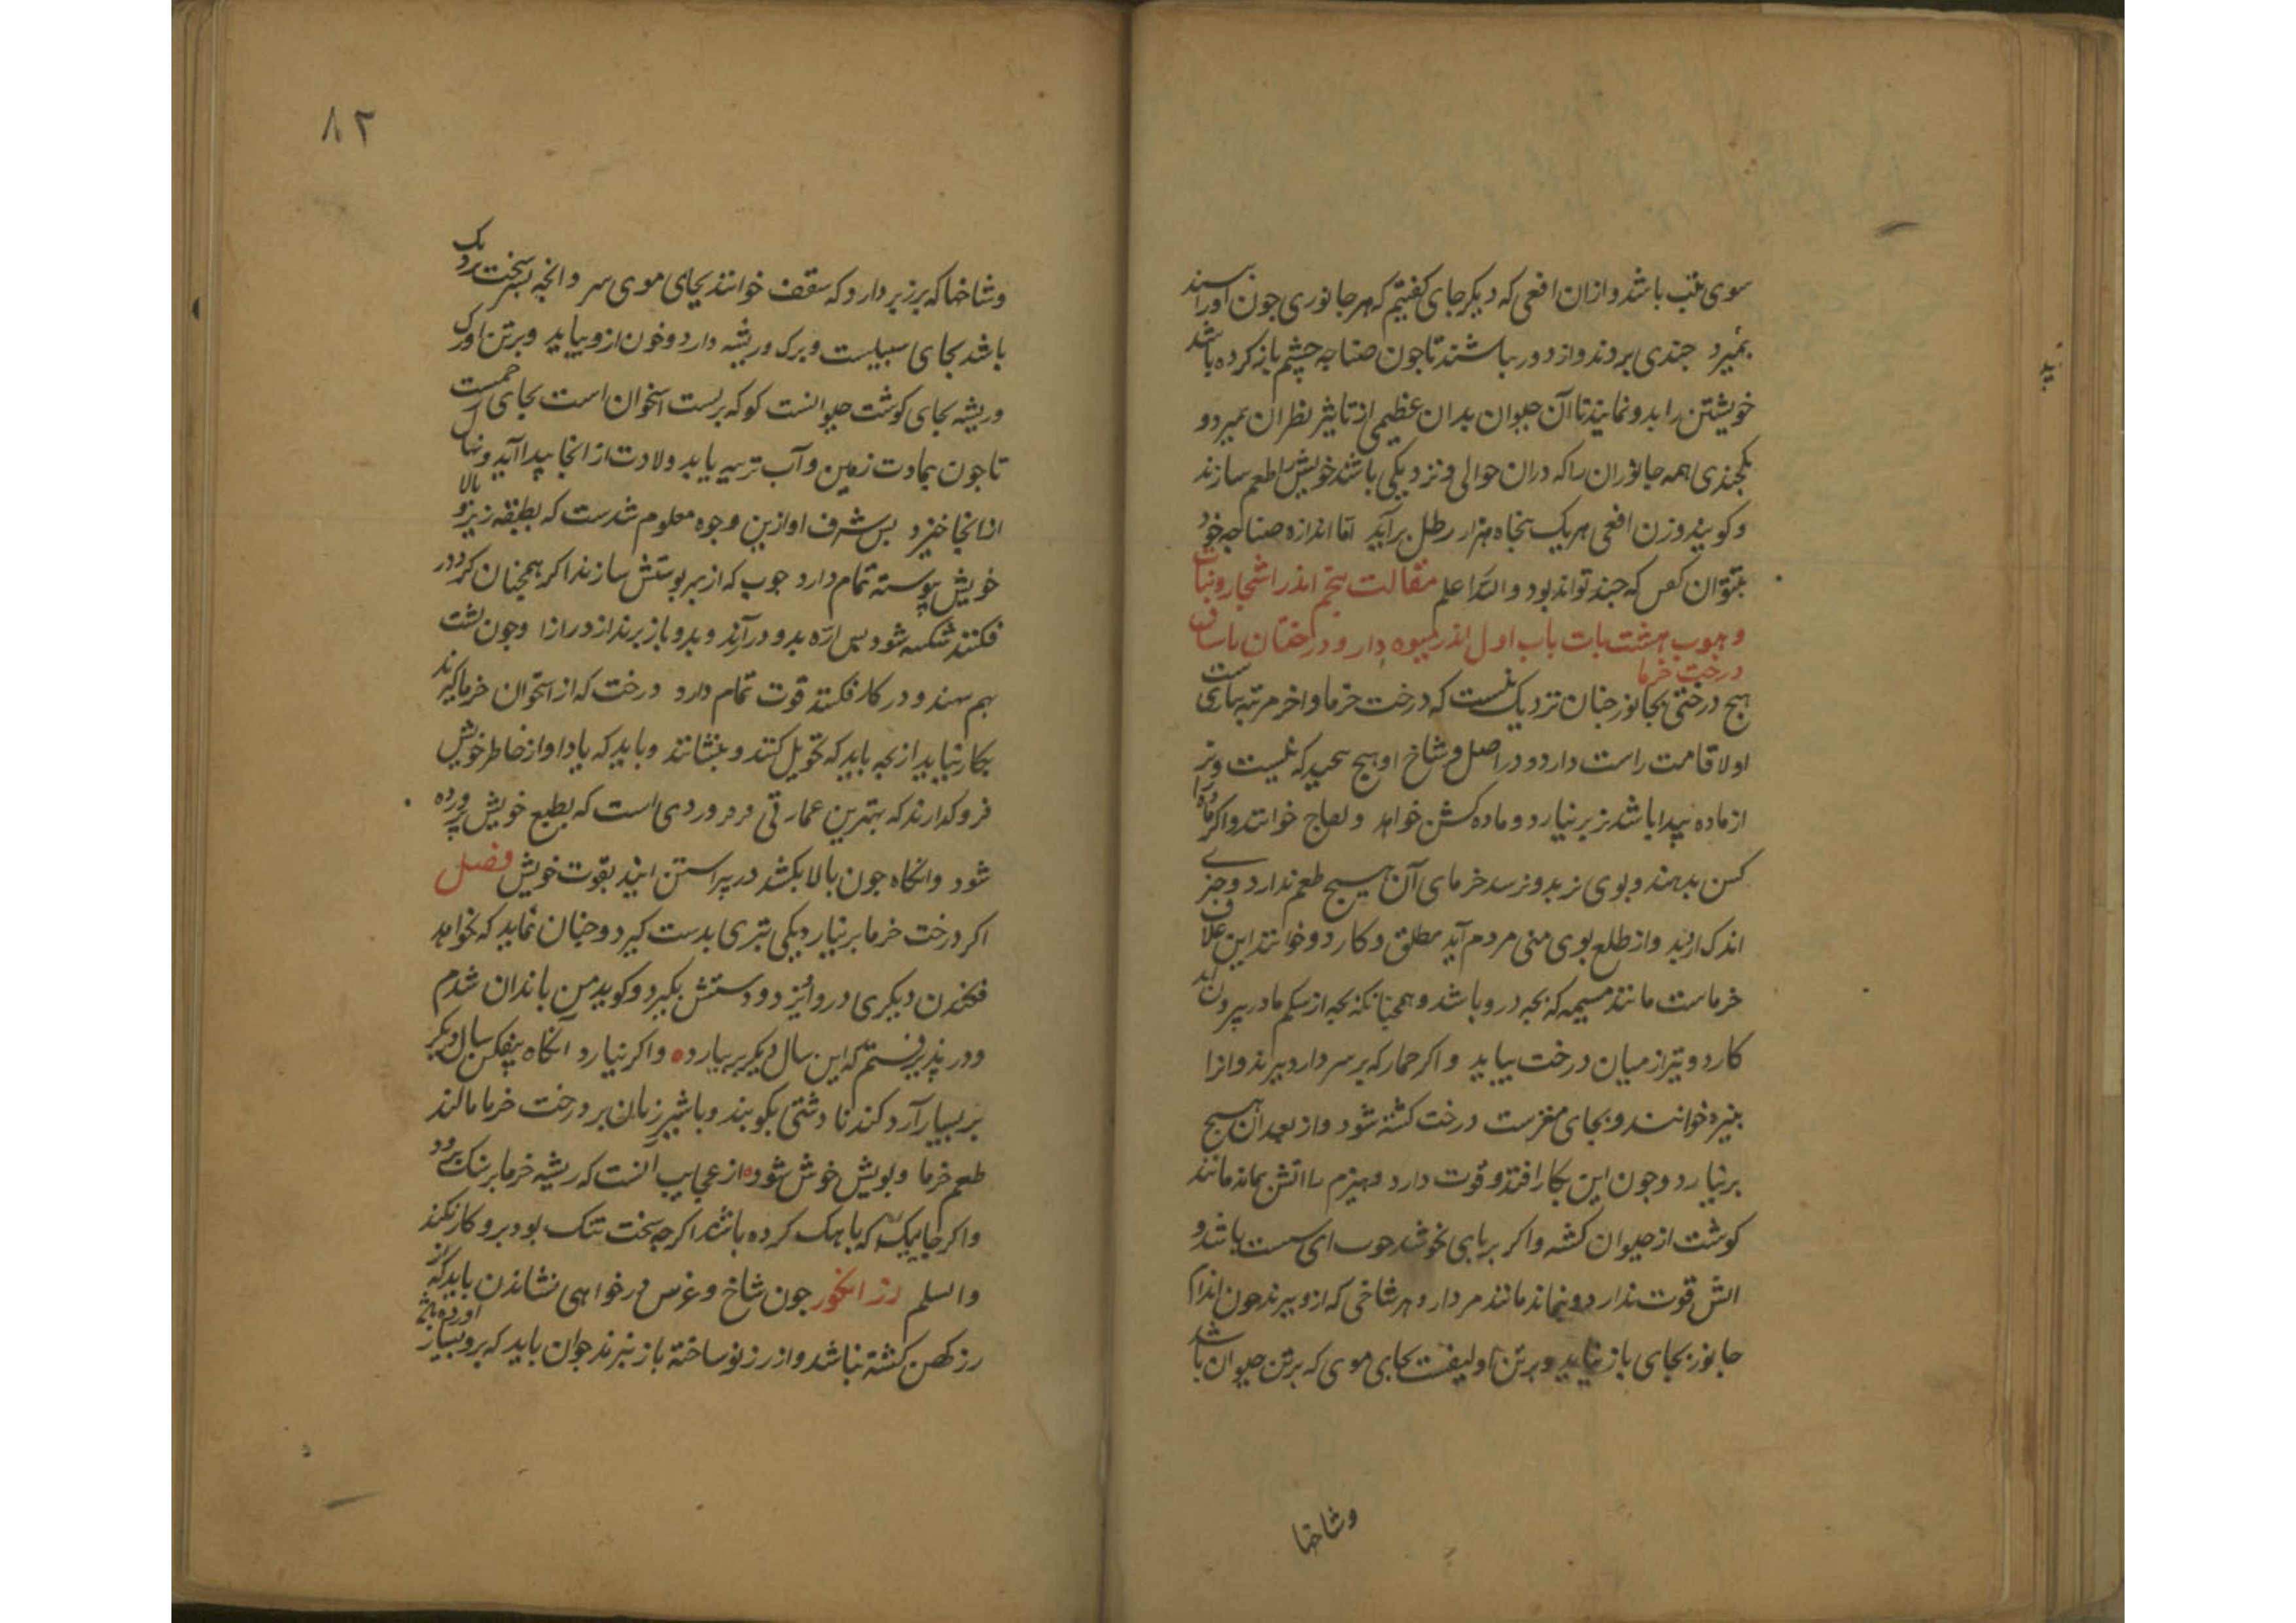 سوی عقب باشد و ازان افعی که دیکر جای کفتیم که هر جانوری جون اورا بیند
بمیرد جندی بردند و از دور بباشند تا جون صناجه جشم باز کرده باشد
خویشتن را بدو نمایند تا آن حیوان بدان عظیمی از تاثیر نظر آن بمیرد و
همه جانوران را که دران حوالی و نزدیکی باشد خویش را طعم سازند
و کویند وزن افعی هر یک بنجاه هزار رطل برآید اما اندازه صناجه خود
بتوان کفت که جند تواند بود والله اعلم مقالت بنجم اندر اشجار و نبات
و حبوب هشت بابت باب اول اندر میوه دار و درختان باساق
درخت خرما
هیج درختی بجانور جنان نزدیک نیست که درخت خرما و اخر مرتبه نباتیست
اولا قامت راست دارد و در اصل و شاخ او هیج که نیست و نر
از ماده بیدا باشد نر بر نیارد و ماده کشن خواهد و لقاح خوانند و اکر ماده را
کشن بدهند و بوی نر بدو نرسد خرمای آن هیسج طعم ندارد و جزی
اندک ارزد و از طلع بوی منی مردم آید مطلق و کاردو خوانند این غلاف
خرماست مانند مسیمه که بجه درو باشد و همجنانکه بجه از شکم مادر بیرون آید
کاردو نیز از میان درخت بیاید و اکر جمار که بر سر دارد ببرند و انرا
بنیره خوانند و بجای مغزست درخت کشته شود و از بعد آن هیسج
بر نیارد و جون این بکار افتد و قوت دارد و هیزم را اتش بماند مانند
کوشت از حیوان کشته و اکر بر بای بخوشد جوب ای سست باشد و
اتش قوت ندارد و نماند مانند مردار و هر شاخی که ازو ببرند جون اندام
جانور بجای باز نیاید و بر تن او لیفست بجای موی که بر تن حیوان باشد
وشاخها
۸۲
و شاخها که بر زبر دارد که سقف خوانند بجای موی سر و انجه بسر سخت نزدیک
باشد بجای سبیلست و برک و ریشه دارد و خون ازو بیاید و بر تن او رک
و ریشه بجای کوشت حیوانست کو که بر بست استخوان است بجای تخمست
تا جون بمادت زمین و آب تربیه یابد ولادت از انجا بیدا آید و نهال
از انجا خیزد بس شرف او ازین وجوه معلوم شدست که بطبقه زیر و بالا
خویش بیوسته تمام دارد جوب که از بهر بوستش سازند اکر همجنان کرد در
فکنند شکسته شود بس اره بدو در آرند و بدو باز برند از درازا و جون بشت
بهم نهند و در کار فکنند قوت تمام دارد درخت که از استخوان خرما کیرند
بکار نیاید از بجه باید که تحویل کنند و بنشانند و باید که یاد او از خاطر خویش
فرو کدارند که بهترین عمارتی در وردی است که بطبع خویش برورده
شود و انکاه جون بالا بکشد در بیراستن ایند بقوت خویش فصل
اکر درخت خرما بر نیارد یکی تبری بدست کیرد و جنان نماید که بخواهد
فکندن دیکری درواویزد و دستش بکیرد و کوید من باندان شدم
و در بذیرفتم که این سال دیکر بر بیارد و اکر نیارد آنکاه بیفکن سال دیکر
بر بسیار آرد کندنا دشتی بکوبند و با شیر زنان بر درخت خرما مالند
طعم خرما و بویش خوش شود از عجایب آنست که ریشه خرما بر سنک برود
و اکر جایکی که باهک کرده باشند اکر جه سخت تنک بود برو کار نکند
والسلم رز انکور جون شاخ و غرس در خواهی نشاندن باید که از
رز کهن کشته نباشد و از رز نو ساخته باز نبرند جوان باید که برو بسیار
اورده باشد